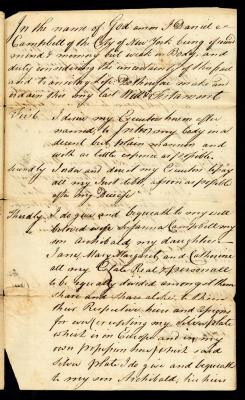 In the name of God amen I Daniel
Campbell of the City of New York being of sound
mind & memory but weak in Body, and
duly considering the uncertainty of
and transitory Life Do therefore make and
ordain this my last Will & Testament
First I desire my Executors herein after
named, to Inter my body in a
decent but plain manner and
with as little expence as possible,
Secondly I order and direct my Executors to pay
all my Just debts as soon as possible
after my Decease
Thirdly I do give and bequeath to my well
beloved wife Susanna Campbell my
son Archibald my daughters
Jane, Mary, Margaret, and Catherine
all my Estate Real & personall
to be equally divided amongst them
share and share alike, to them
their Respective heirs and assigns
for ever excepting my Silver plate
which is in Europe and in my
own which said
Silver plate I do give and bequeath
to my son Archibald, his heirs